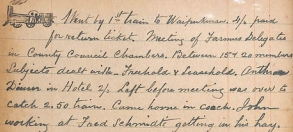 Went by 1st train to Waipukurau. 4/- paid
for return ticket. Meeting of Farmers Delegates
in County Council Chambers. Between 15 & 20 members
Subjects dealt with. Freehold & Leasehold.
Dinner in Hotel 2/- Left before meeting was over to
catch 2.50 train. Came home in coach. John
working at Fred Schmidt getting in his hay.